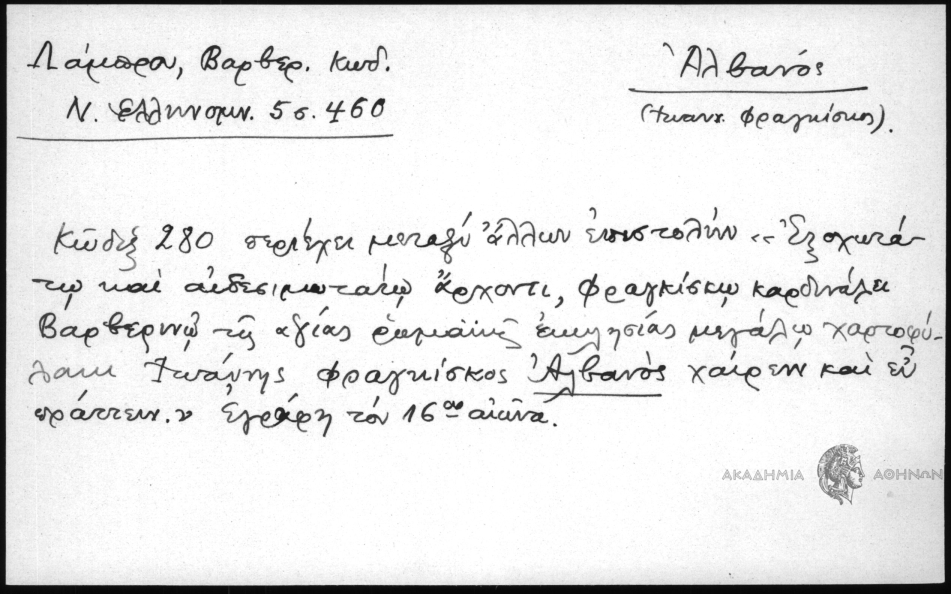 Λάμπρου, Βαρβερ. Κωδ.
Ν. Ἑλληνομν. 5 σ. 460
Ἀλβανός
(Ἰωανν. Φραγκίσκος).
Κῶδιξ 280 περιέχει μεταξύ ἄλλων ἐπιστολήν «Ἐξοχωτά-
τῳ καὶ αἰδεσιμωτάτῳ ἄρχοντι, Φραγκίσκῳ καρδινάλει
Βαρβερινῷ τῆς ἁγίας ῥωμαϊκῆς ἐκκλησίας μεγάλῳ χαρτοφύ-
λακι Ἰωάννης Φραγκίσκος Ἀλβανὸς χαίρειν καὶ εὖ
πράττειν.» Ἐγράφη τὸν 16ον αἰῶνα.
ΑΚΑΔΗΜΙΑ ΑΘΗΝΩΝ